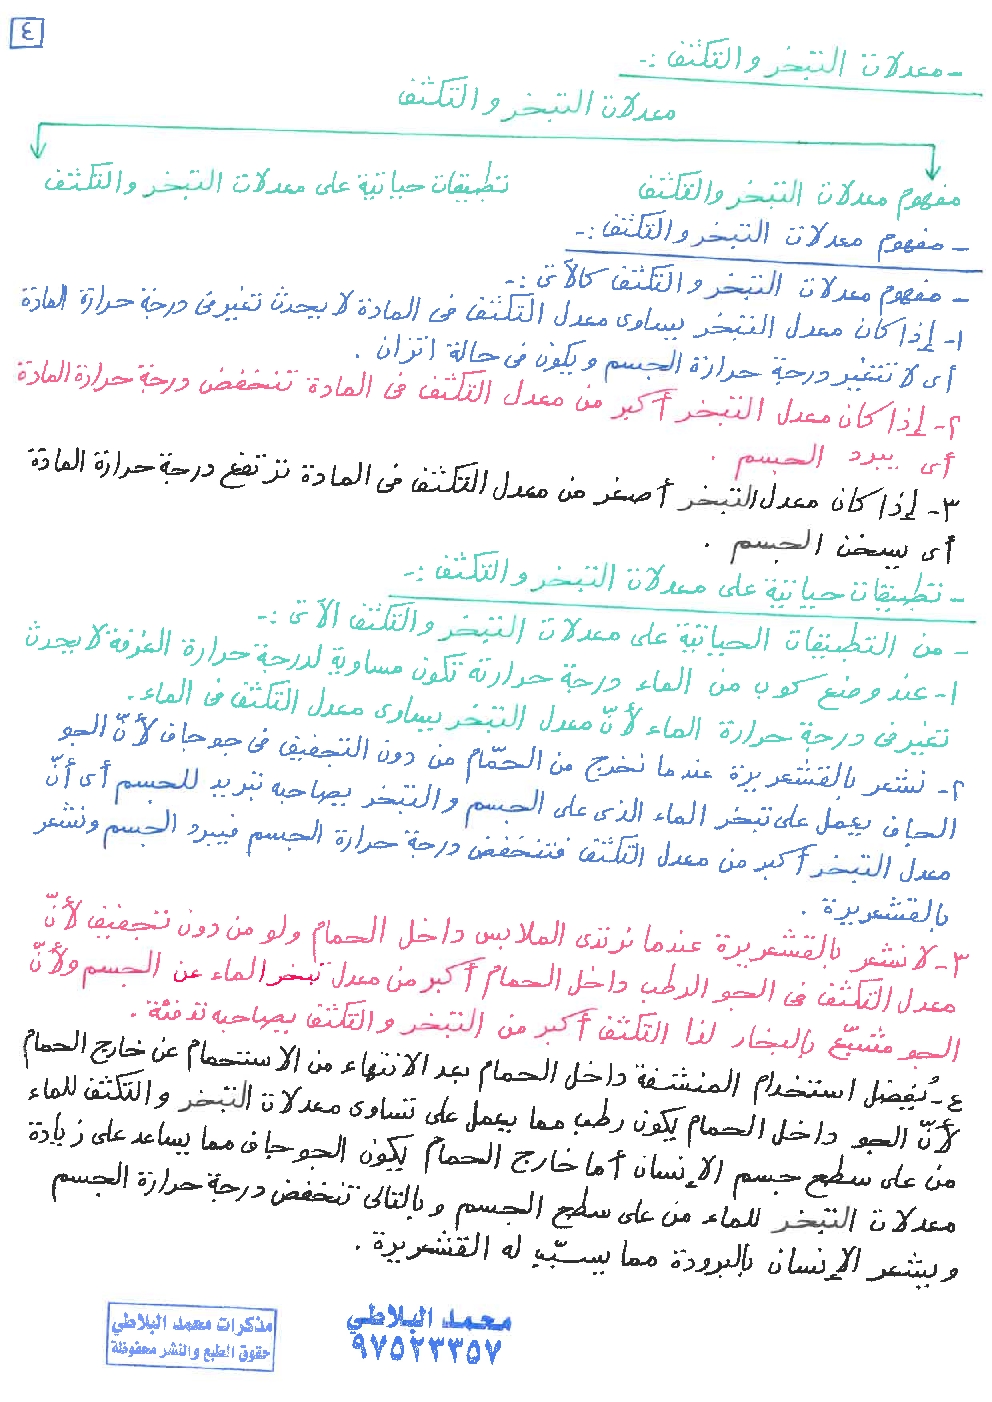 ٤
- معدلات التبخر والتكثف :-
معدلات التبخر والتكثف
مفهوم معدلات التبخر والتكثف
تطبيقات حياتية على معدلات التبخر والتكثف
- مفهوم معدلات التبخر والتكثف :-
- مفهوم معدلات التبخر والتكثف كالآتى :-
١- إذا كان معدل التبخر يساوى معدل التكثف فى المادة لا يحدث تغير فى درجة حرارة المادة
أى لا تتغير درجة حرارة الجسم ويكون فى حالة اتزان .
٢- إذا كان معدل التبخر أكبر من معدل التكثف فى المادة تنخفض درجة حرارة المادة
أى يبرد الجسم .
٣- إذا كان معدل التبخر أصغر من معدل التكثف فى المادة ترتفع درجة حرارة المادة
أى يسخن الجسم .
- تطبيقات حياتية على معدلات التبخر والتكثف :-
- من التطبيقات الحياتية على معدلات التبخر والتكثف الآتى :-
١- عند وضع كوب من الماء درجة حرارته تكون مساوية لدرجة حرارة الغرفة لا يحدث
تغير فى درجة حرارة الماء لأنّ معدل التبخر يساوى معدل التكثف فى الماء.
٢- نشعر بالقشعريرة عندما نخرج من الحمّام من دون التجفيف فى جو جاف لأنّ الجو
الجاف يعمل على تبخر الماء الذى على الجسم والتبخر يصاحبه تبريد للجسم أى أنّ
معدل التبخر أكبر من معدل التكثف فتنخفض درجة حرارة الجسم فيبرد الجسم ونشعر
بالقشعريرة .
٣- لا نشعر بالقشعريرة عندما نرتدى الملابس داخل الحمام ولو من دون تجفيف لأنّ
معدل التكثف فى الجو الرطب داخل الحمام أكبر من معدل تبخر الماء عن الجسم ولأنّ
الجو مشبّع بالبخار لذا التكثف أكبر من التبخر والتكثف يصاحبه تدفئة .
٤- يُفضل استخدام المنشفة داخل الحمام بعد الانتهاء من الاستحمام عن خارج الحمام
لأنّ الجو داخل الحمام يكون رطب مما يعمل على تساوى معدلات التبخر والتكثف للماء
من على سطح جسم الإنسان أما خارج الحمام يكون الجو جاف مما يساعد على زيادة
معدلات التبخر للماء من على سطح الجسم وبالتالى تنخفض درجة حرارة الجسم
ويشعر الإنسان بالبرودة مما يسبّب له القشعريرة .
محمد البلاطي
٩٧٥٢٣٣٥٧
مذكرات محمد البلاطي
حقوق الطبع والنشر محفوظة